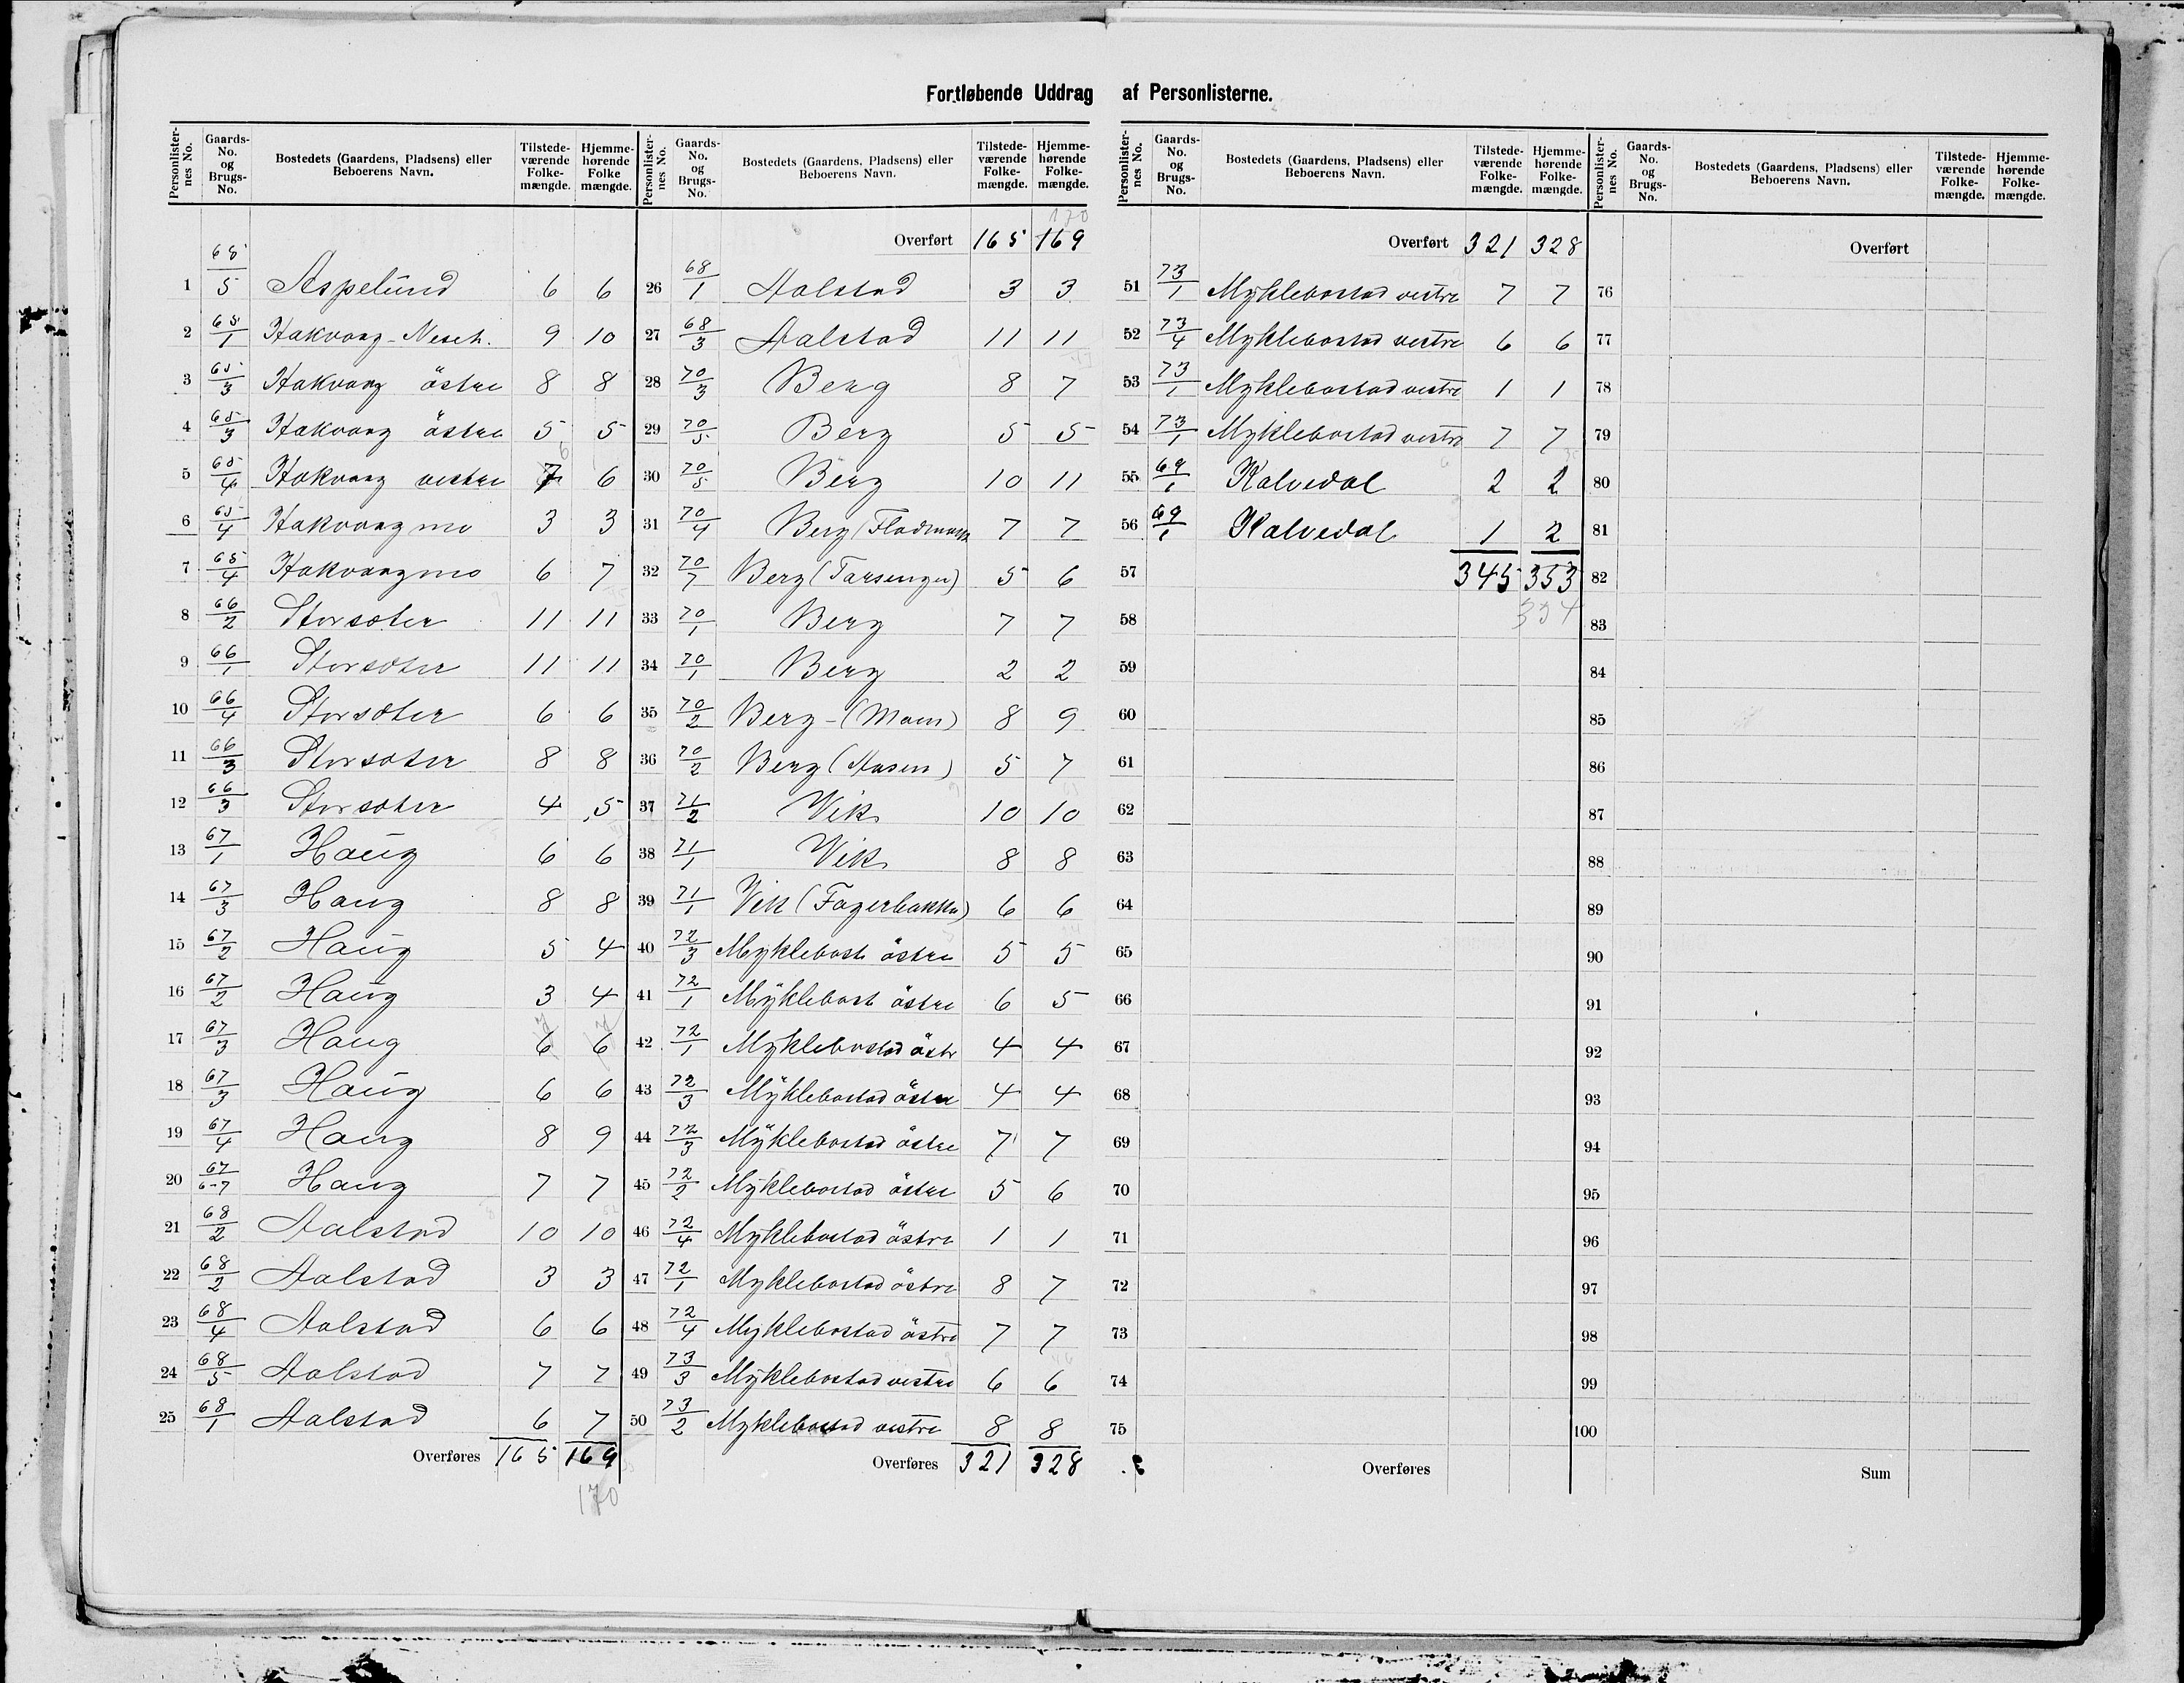 Fortløbende Uddrag af Personlisterne.
Personlisternes No. Gaards-No. og Brugs-No. Bostedets (Gaardens, Pladsens) eller Beboerens Navn. Tilstedeværende Folkemængde. Hjemmehørende Folke mængde.
1 65/5 Aspelund 6 6
2 65/1 9 10
3 65/3 Hakvaag östre 8 8
4 65/3 Hakvaag östre 5 5
5 65/4 Hakvaag vestre 7 6
6 65/4 Hakvaagmo 3 3
7 65/4 Hakvaagmo 6 7
8 66/2 Storsæter 11 11
9 66/1 Storsæter 11 11
10 66/4 Storsæter 6 6
11 66/3 Storsæter 8 8
12 66/3 Storsæter 4 5
13 67/1 Haug 6 6
14 67/3 Haug 8 8
15 67/2 Haug 5 4
16 67/2 Haug 3 4
17 67/3 Haug 6 6
18 67/3 Haug 6 6
19 67/4 Haug 8 9
20 67/6-7 Haug 7 7
21 68/2 Aalstad 10 10
22 68/2 Aalstad 3 3
23 68/4 Aalstad 6 6
24 68/5 Aalstad 7 7
25 68/1 Aalstad 6 7
Overføres 165 169
170
Personlisternes No. Gaards-No. og Brugs-No. Bostedets (Gaardens, Pladsens) eller Beboerens Navn. Tilstedeværende Folkemængde. Hjemmehørende Folkemængde.
170
Overført 165 169
26 68/1 Aalstad 3 3
27 68/3 Aalstad 11 11
28 70/3 Berg 8 7
29 70/5 Berg 5 5
30 70/5 Berg 10 11
31 70/4 Berg (Fladmark 7 7
32 70/7 Berg 5 6
33 70/1 Berg 7 7
34 70/1 Berg 2 2
35 70/2 Berg - (Moen) 8 9
36 70/2 Berg (Aasen) 5 7
37 71/2 Vik 10 10
38 71/1 Vik 8 8
39 71/1 Vik (Fagerbakke) 6 6
40 72/3 Myklebost östre 5 5
41 72/1 Myklebost östre 6 5
42 72/1 Myklebostad östr 4 4
43 72/3 Myklebostad östre 4 4
44 72/3 Myklebostad östre 7 7
45 72/2 Myklebostad östre 5 6
46 72/4 Myklebostad östre 1 1
47 72/1 Myklebostad östre 8 7
48 72/4 Myklebostad östre 7 7
49 73/3 Myklebostad vestre 6 6
50 73/2 Myklebostad vestre 8 8
Overføres 321 328
Personlisternes No. Gaards-No. og Brugs-No. Bostedets (Gaardens, Pladsens) eller Beboerens Navn. Tilstedeværende Folkemængde. Hjemmehørende Folkemængde.
Overført 321 328
51 73/1 Myklebostad vestre 7 7
52 73/4 Myklebostad vestre 6 6
53 73/1 Myklebostad vestre 1 1
54 73/1 Myklebostad vestre 7 7
55 69/1 Kalvedal 2 2
56 69/1 Kalvedal 1 2
57 345 353
58 354
59
60
61
62
63
64
65
66
67
68
69
70
71
72
73
74
75
Overføres
Personlisternes No. Gaards-No. og Brugs-No. Bostedets (Gaardens, Pladsens) eller Beboerens Navn. Tilstedeværende Folkemængde. Hjemmehørende Folkemængde.
Overført
76
77
78
79
80
81
82
83
84
85
86
87
88
89
90
91
92
93
94
95
96
97
98
99
100
Sum